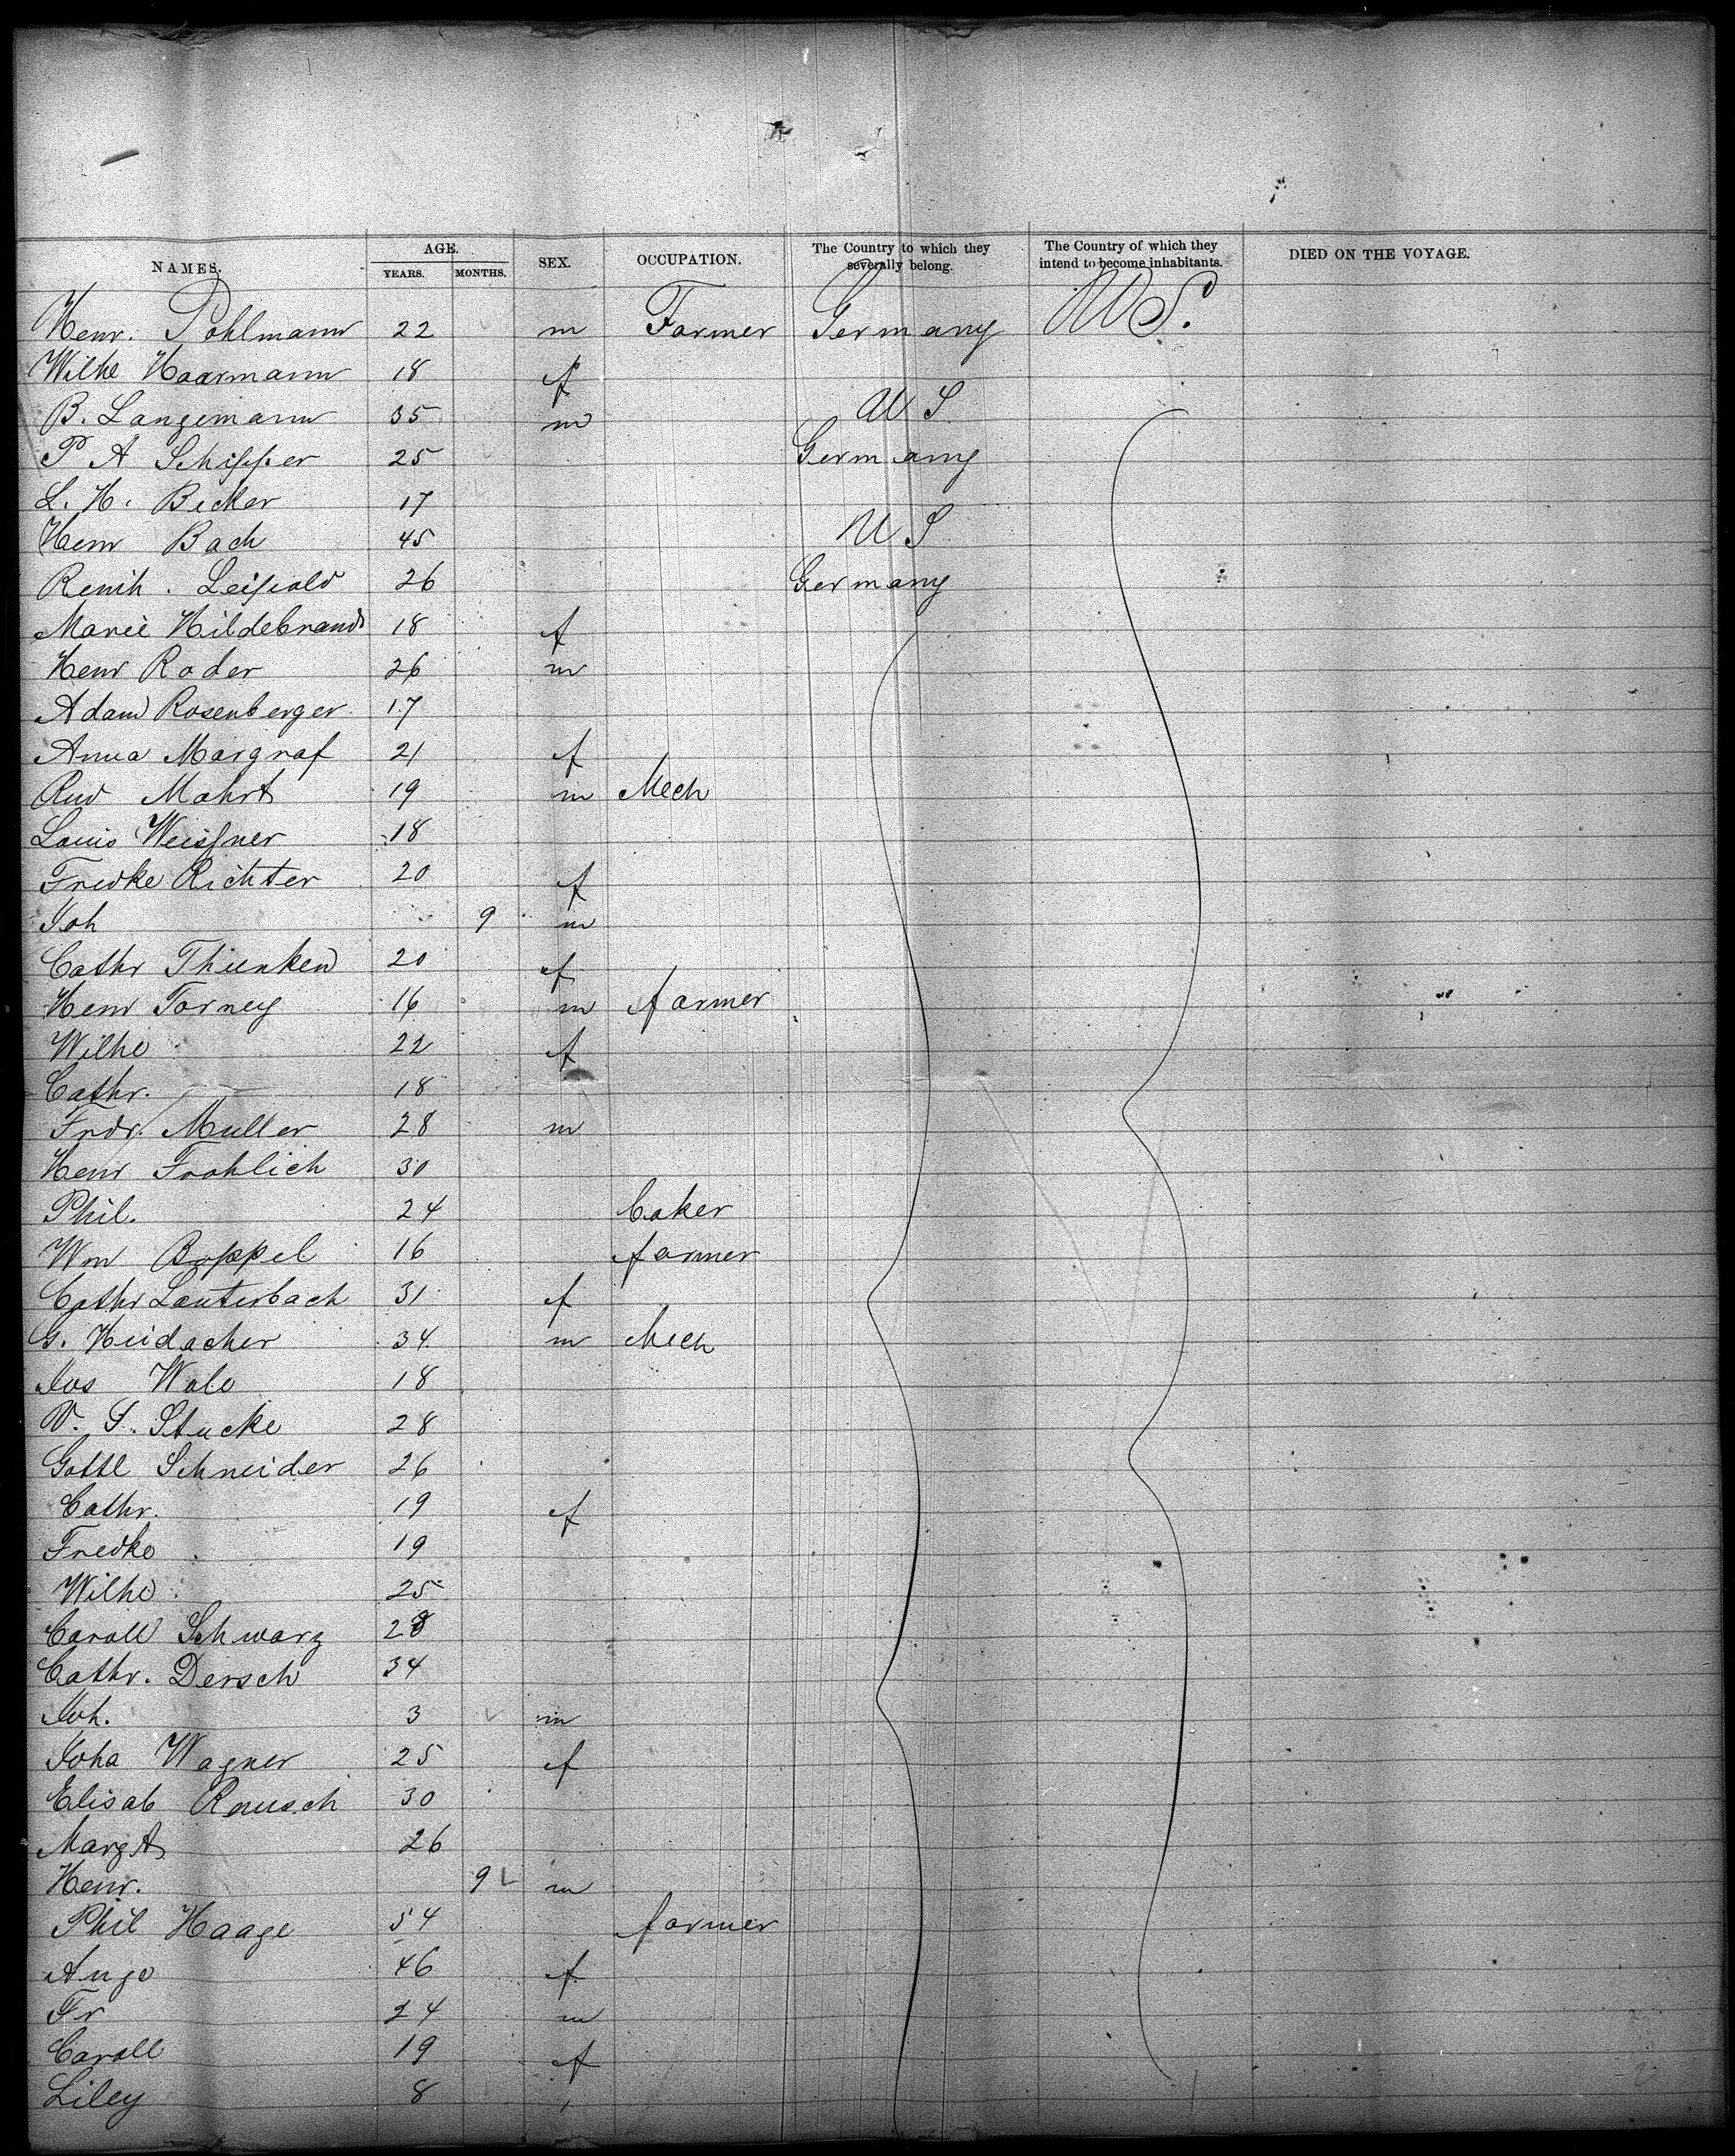 NAMES. AGE. YEARS. MONTHS. SEX. OCCUPATION. The Country to which they severally belong. The Country of which they intend to become inhabitants. DIED ON THE VOYAGE.
Henr. Pohlmann 22 m Farmer Germany U S.
Wilhe Haarmann 18 f
B. Langemann 35 m U S
P A Schipper 25 Germany
L. H. Becker 17
Henr Bach 45 U S
Reinh. Leipold 26 Germany
Marie Hildebrand 18 f
Henr Roder 26 m
Adam Rosenberger 17
Anna Margraf 21 f
Rud Mahrt 19 m Mech
Louis Weissner 18
Fredke Richter 20 f
Joh 9 m
Cathr Thienken 20 f
Henr Torney 16 m farmer
Wilhe 22 f
Cathr. 18
Fredr. Muller 28 m
Henr Frohlich 30
Phil. 24 baker
Wm Boppel 16 farmer
Cathr Lauterbach 31 f
G. Heidacher 34 m Mech
Jos Wale 18
W. S. Stucke 28
Gottl Schneider 26
Cathr. 19 f
Fredke 19
Wilhe 25
Caroll Schwarz 28
Cathr. Dersch 34
Joh. 3 m
Joha Wagner 25 f
Elisab Rausch 30
Margt 26
Henr. 9 m
Phil Haage 54 farmer
Auge 46 f
Fr 24 m
Caroll 19 f
Liley 8